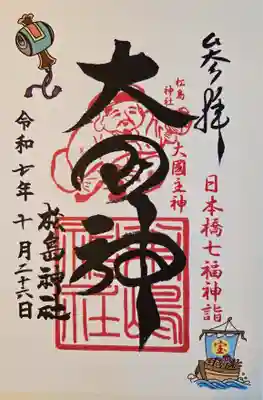 参拝
日本橋七福神詣
松島神社
大國主神
大国神
松島神社
令和七年十月二十六日
宝